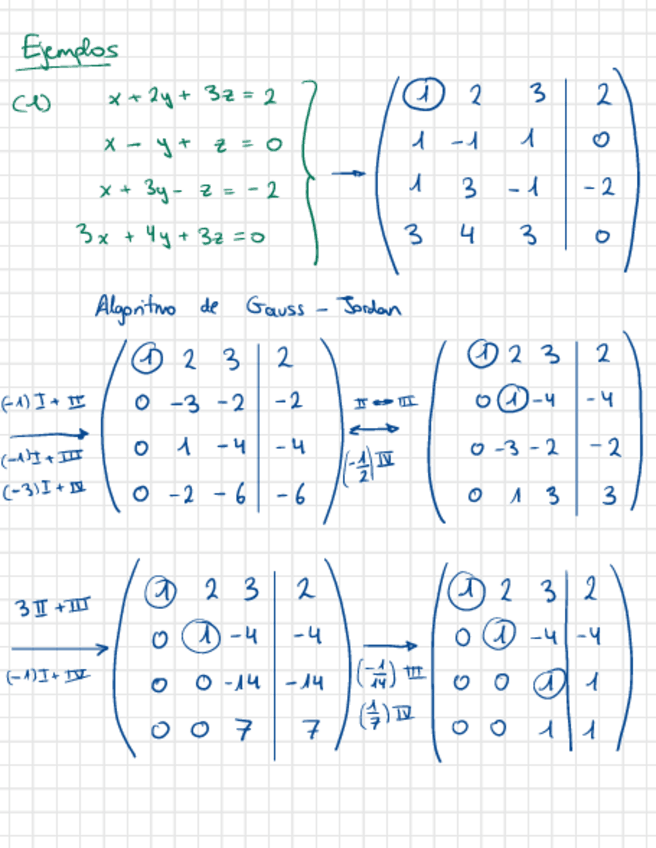 Ejemplos
(1) x + 2y + 3z = 2
x - y + z = 0
x + 3y - z = -2
3x + 4y + 3z = 0
→
1 2 3 | 2
1 -1 1 | 0
1 3 -1 | -2
3 4 3 | 0
Algoritmo de Gauss - Jordan
(-1)I + II
(-1)I + III
(-3)I + IV
1 2 3 | 2
0 -3 -2 | -2
0 1 -4 | -4
0 -2 -6 | -6
II ↔ III
(-1/2) IV
1 2 3 | 2
0 1 -4 | -4
0 -3 -2 | -2
0 1 3 | 3
3II + III
(-1)I + IV
1 2 3 | 2
0 1 -4 | -4
0 0 -14 | -14
0 0 7 | 7
(-1/14) III
(1/7) IV
1 2 3 | 2
0 1 -4 | -4
0 0 1 | 1
0 0 1 | 1